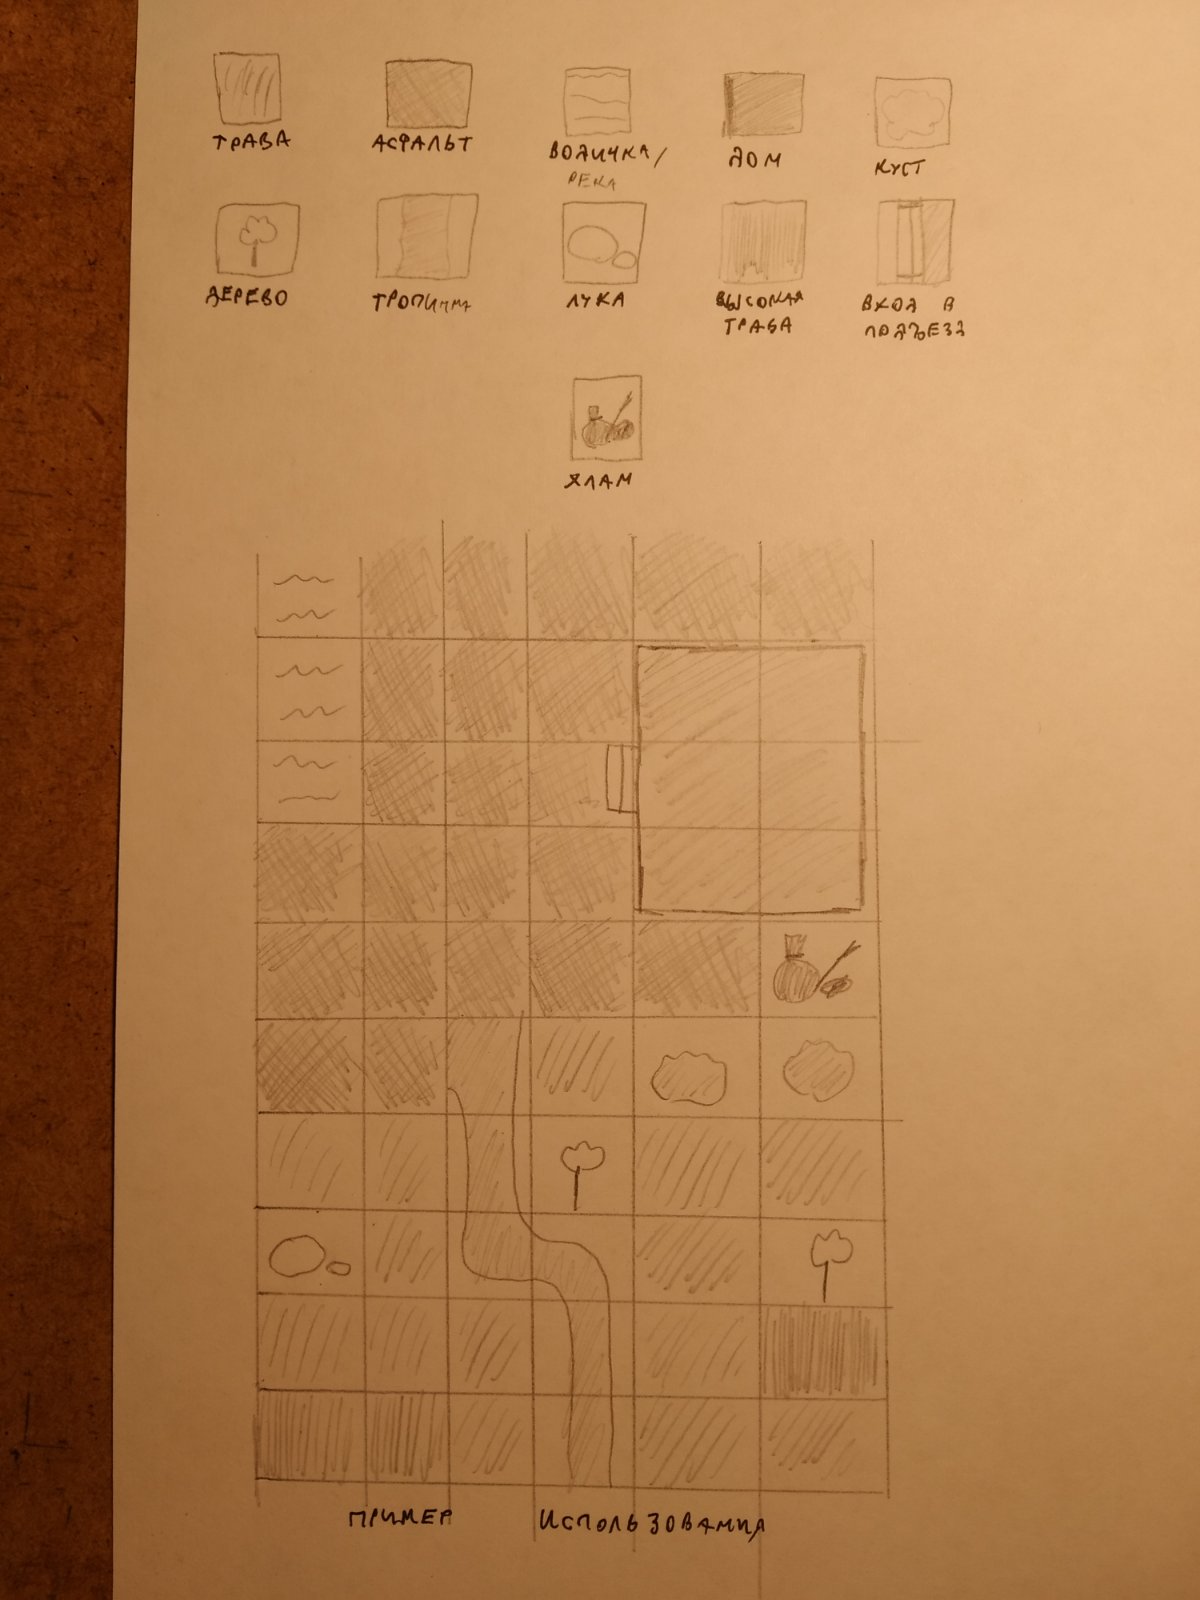 ТРАВА АСФАЛЬТ ВОДИЧКА/ ДОМ КУСТ
РЕКА
ДЕРЕВО ТРОПИНКА ЛУЖА ВЫСОКАЯ ВХОД В
ТРАВА ПОДЪЕЗД
ХЛАМ
ПРИМЕР ИСПОЛЬЗОВАНИЯ